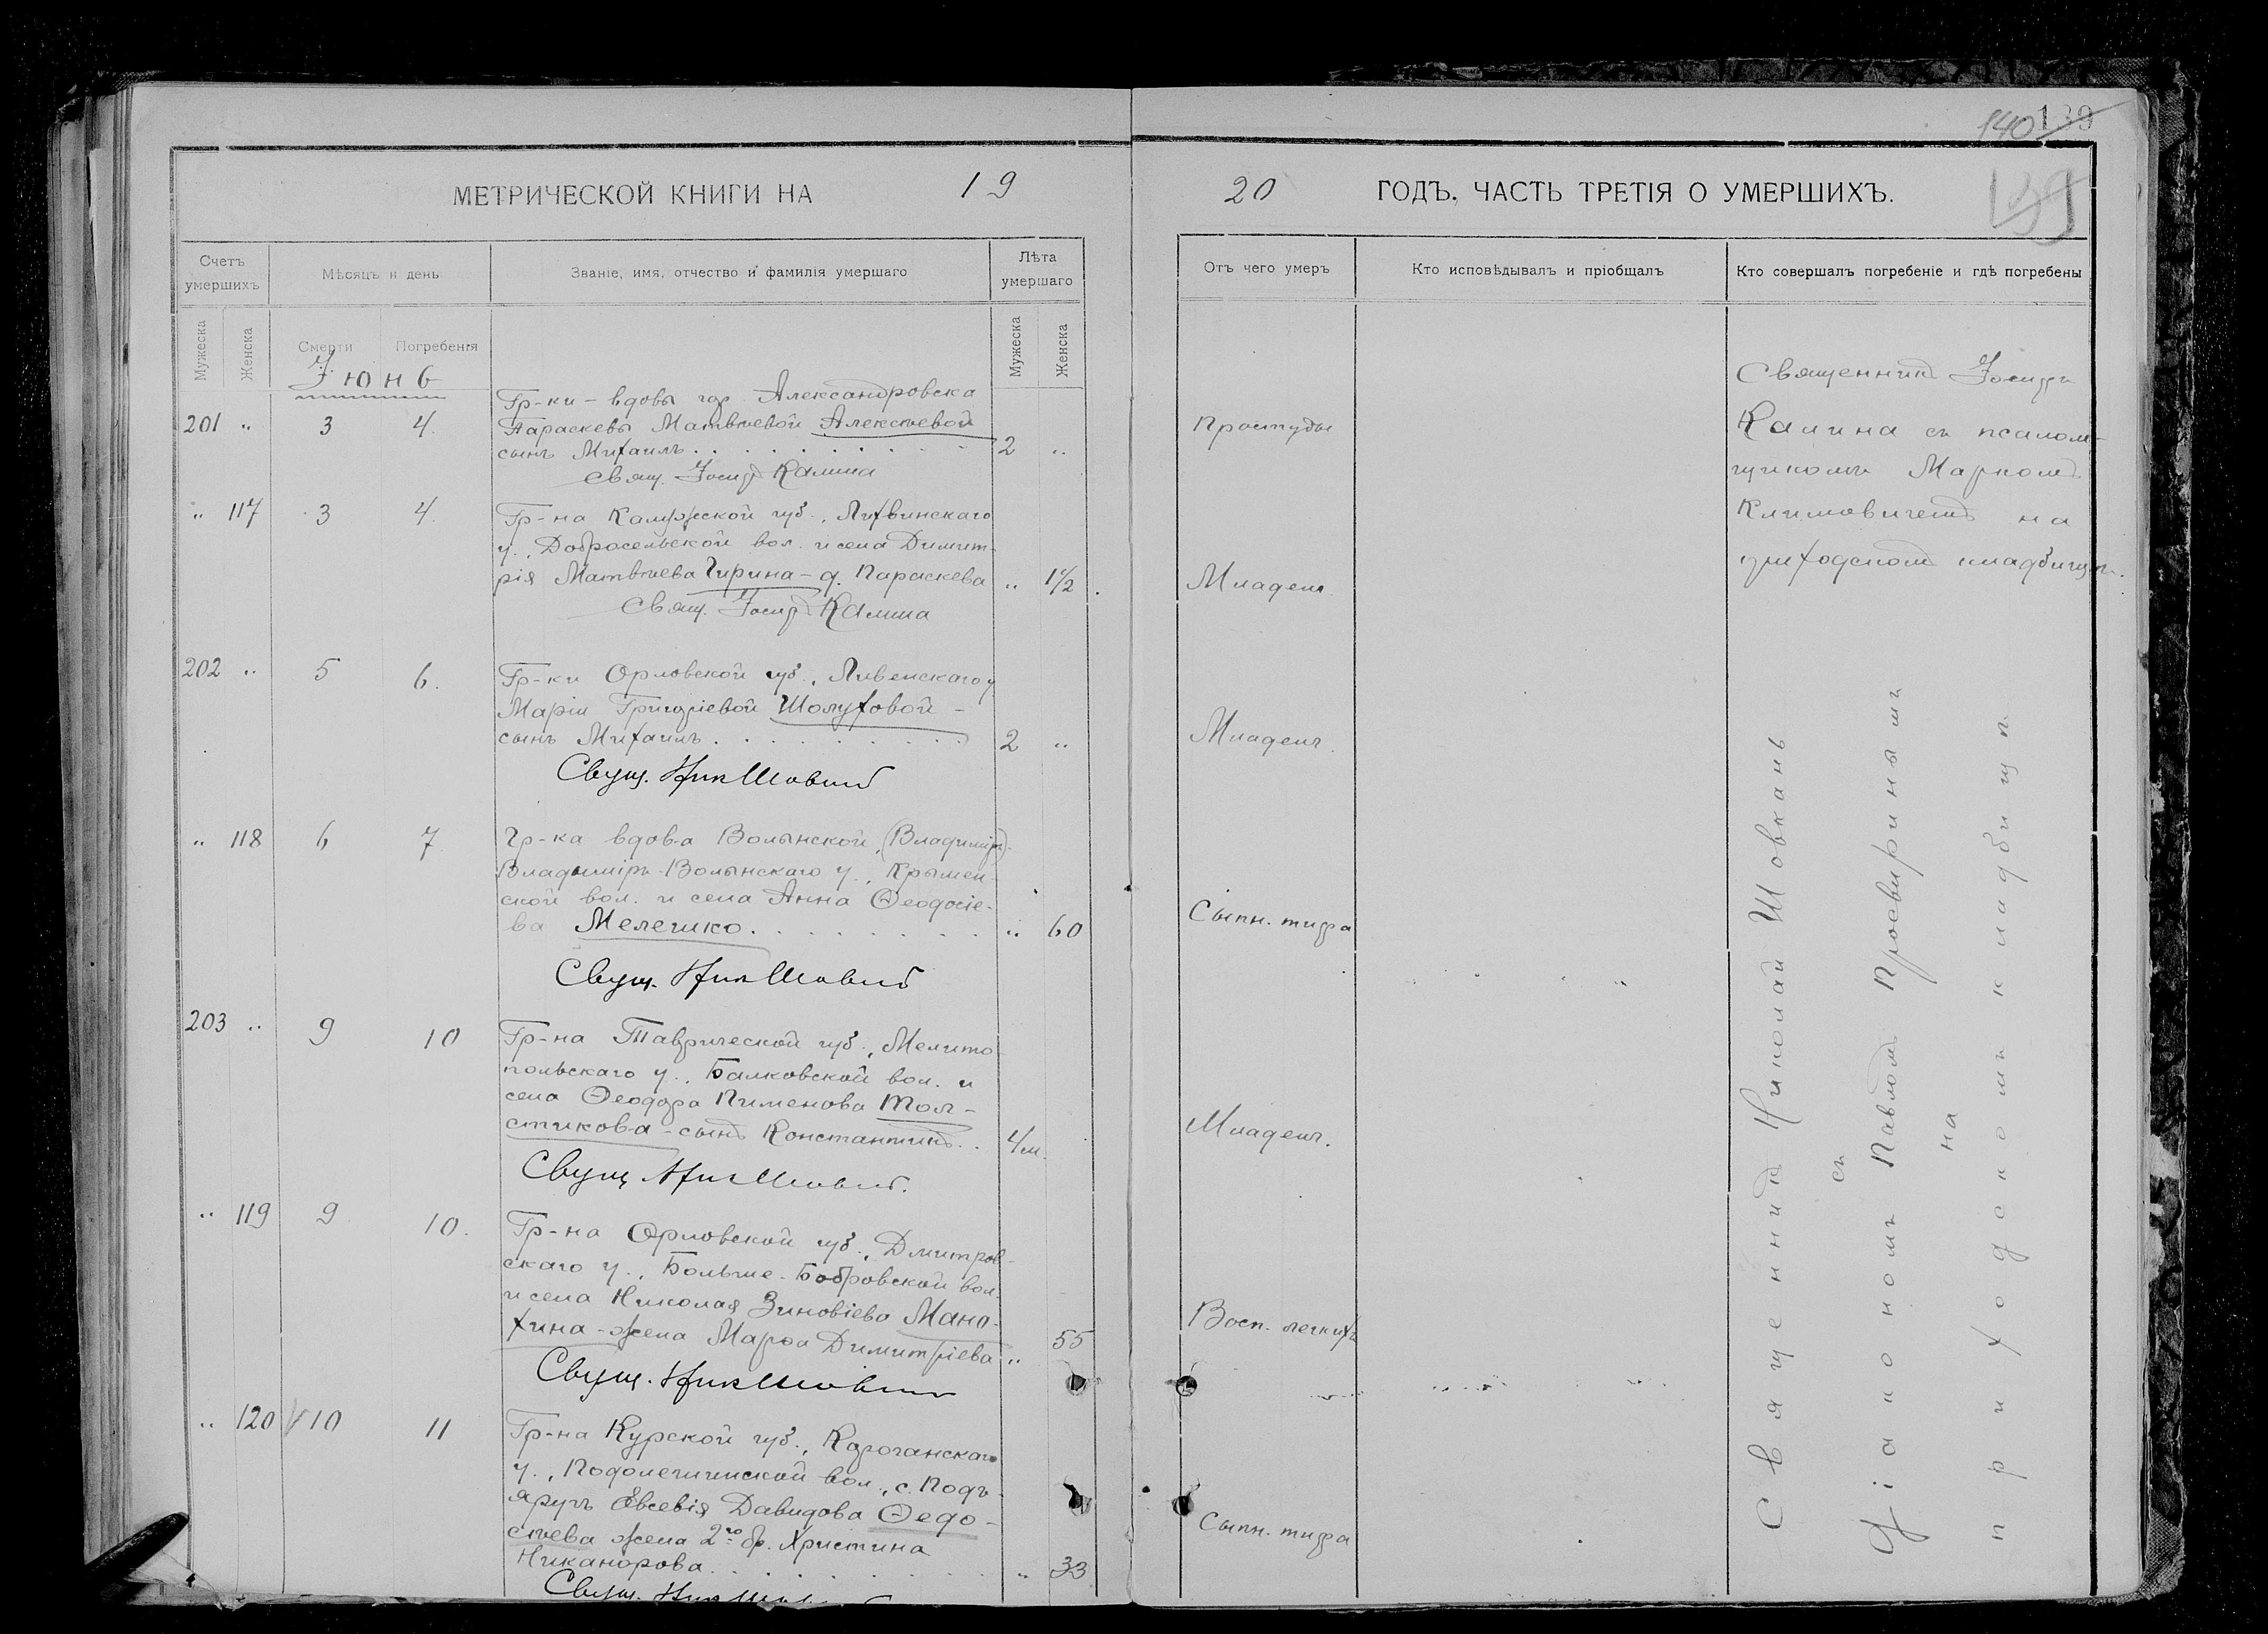 140 139
139
МЕТРИЧЕСКОЙ КНИГИ НА 19
20 ГОДЪ, ЧАСТЬ ТРЕТІЯ О УМЕРШИХЪ.
Счетъ умершихъ
Мѣсяцъ и день
Званіе, имя, отчество и фамилія умершаго
Лѣта умершаго
Отъ чего умеръ
Кто исповѣдывалъ и пріобщалъ
Кто совершалъ погребеніе и гдѣ погребены
Мужеска
Женска
Смерти
Погребенія
Мужеска
Женска
Іюнь
201 " 3 4
Гр-ки - вдовы гор. Александровска
Параскевы Матвѣевой Алексѣевой
сынъ Михаилъ 2 "
Простуды
Свящ. Іосифъ Калина
" 117 3 4
Гр-на Калужской губ., Лихвинскаго
у., Добросельской вол. и села Димит-
рія Матвѣева Чирина - д. Параскева " 1 1/2
Младенч.
Свящ. Іосифъ Калина
202 " 5 6.
Гр-ки Орловской губ., Ливенскаго у.
Маріи Григоріевой Шолуховой -
сынъ Михаилъ 2 "
Младенч.
Свящ. Ник Шовкан
" 118 6 7
Гр-ка вдова Волынской, (Владимір)-
Владиміръ-Волынскаго у., Крымен-
ской вол. и села Анна Ѳеодосіе-
ва Мелешко " 60
Сыпн. тифа
Свящ. Ник Шовкан
203 " 9 10
Гр-на Таврической губ., Мелито-
польскаго у., Балковской вол. и
села Ѳеодора Пименова Тол-
стикова - сынъ Константинъ 4 м.
Младенч.
Свящ. Ник Шовкан.
" 119 9 10.
Гр-на Орловской губ., Дмитров-
скаго у., Больше-Бобровской вол.
и села Николая Зиновіева Мано-
хина - жена Марѳа Димитріева " 55
Восп. легкихъ
Свящ. Ник Шовкан
" 120 10 11
Гр-на Курской губ., Корочанскаго
у., вол., с. Подъ-
яруги Евсевія Давидова Ѳедо-
сѣева жена 2го бр. Христина
Никанорова " 33
Сыпн. тифа
Свящ. Ник Шовкан
Священникъ Іосифъ
Калина съ псалом-
щикомъ Маркомъ
Климовичемъ на
приходскомъ кладбищѣ.
Священникъ Николай Шовканъ
съ
діакономъ Павломъ Просвиринымъ
на
приходскомъ кладбищѣ